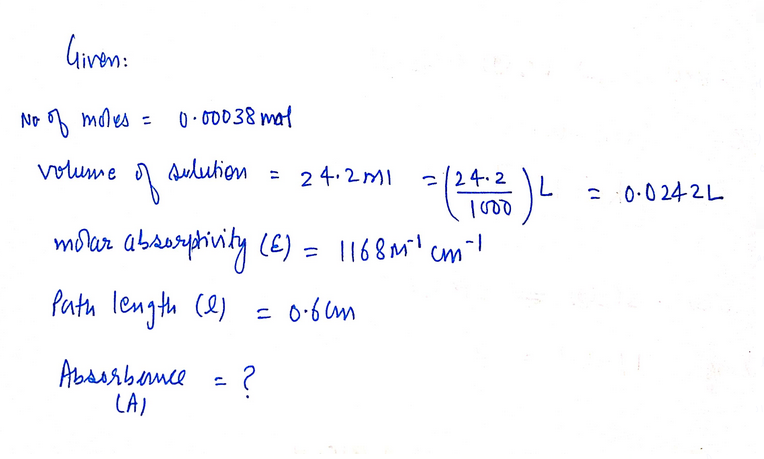 Given:
No of moles = 0.00038 mol
volume of solution = 24.2 ml = (24.2/1000) L = 0.0242 L
molar absorptivity (ε) = 1168 M⁻¹ cm⁻¹
Path length (l) = 0.6 cm
Absorbance = ?
(A)